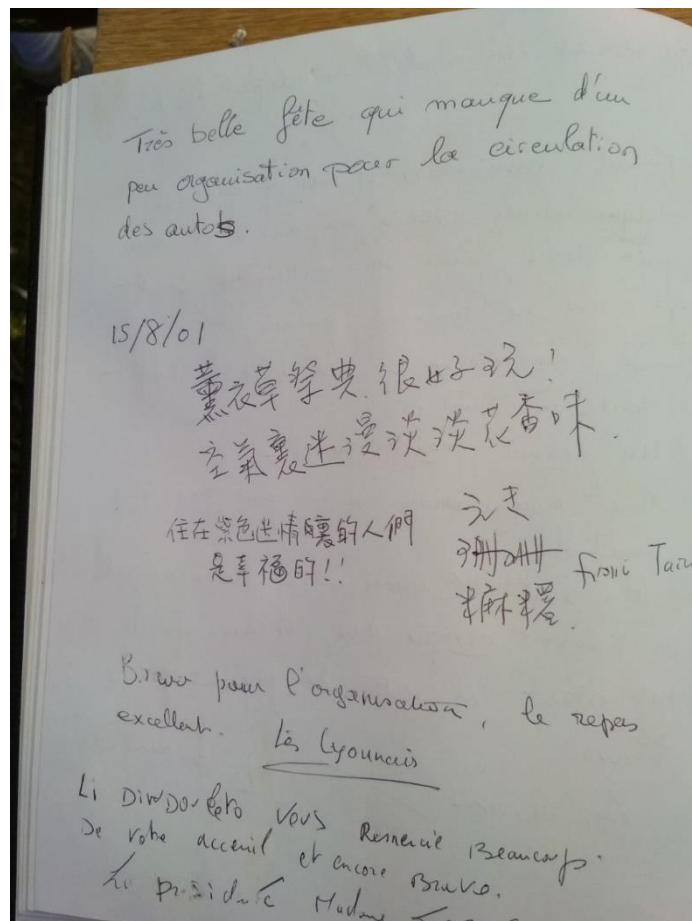 Très belle fête qui manque d'un
peu organisation pour la circulation
des autos.
15/8/01
薰衣草祭典 很好玩!
空氣裏迷漫淡淡花香味.
住在紫色迷情裏的人們
是幸福的!!
from
Bravo pour l'organisation, le repas
excellent. Les Lyonnais
Li DinDouleto vous Remercie Beaucoup
De votre acceuil et encore Bravo.
La présidente Madame